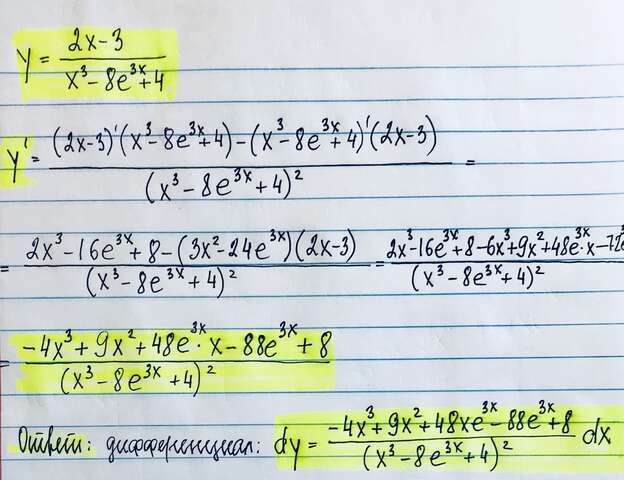 y = (2x-3)/(x³-8e^{3x}+4)
y' = ((2x-3)'(x³-8e^{3x}+4)-(x³-8e^{3x}+4)'(2x-3))/((x³-8e^{3x}+4)²) =
= (2x³-16e^{3x}+8-(3x²-24e^{3x})(2x-3))/((x³-8e^{3x}+4)²) = (2x³-16e^{3x}+8-6x³+9x²+48e^{3x}·x-72e)/((x³-8e^{3x}+4)²)
= (-4x³+9x²+48e^{3x}·x-88e^{3x}+8)/((x³-8e^{3x}+4)²)
Ответ: дифференциал: dy = (-4x³+9x²+48xe^{3x}-88e^{3x}+8)/((x³-8e^{3x}+4)²) dx